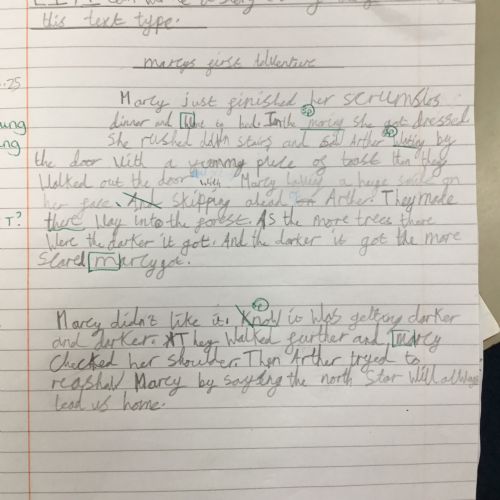 this text type.
..25
marcys first Adventure
Marcy just finished her scrumshos
dinner and in bed. In the morcing she got dressed.
sp
sp
ung
ng
She rushed dawn stairs and saw Arther wating by
the door with a yummy piece of toast then they
Walked out the door with Marcy having a huge smile on
her face. And Skipping ahead on Arther. They made
T?
there way into the forest. As the more trees there
Were the darker it got. And the darker it got the more
Scared marcy got.
sp
Marcy didn't like it. Know it was getting darker
and darker. They Walked further and marcy
Checked her shoulder. Then Arther tryed to
Marcy by saying the north Star will always
lead us home.